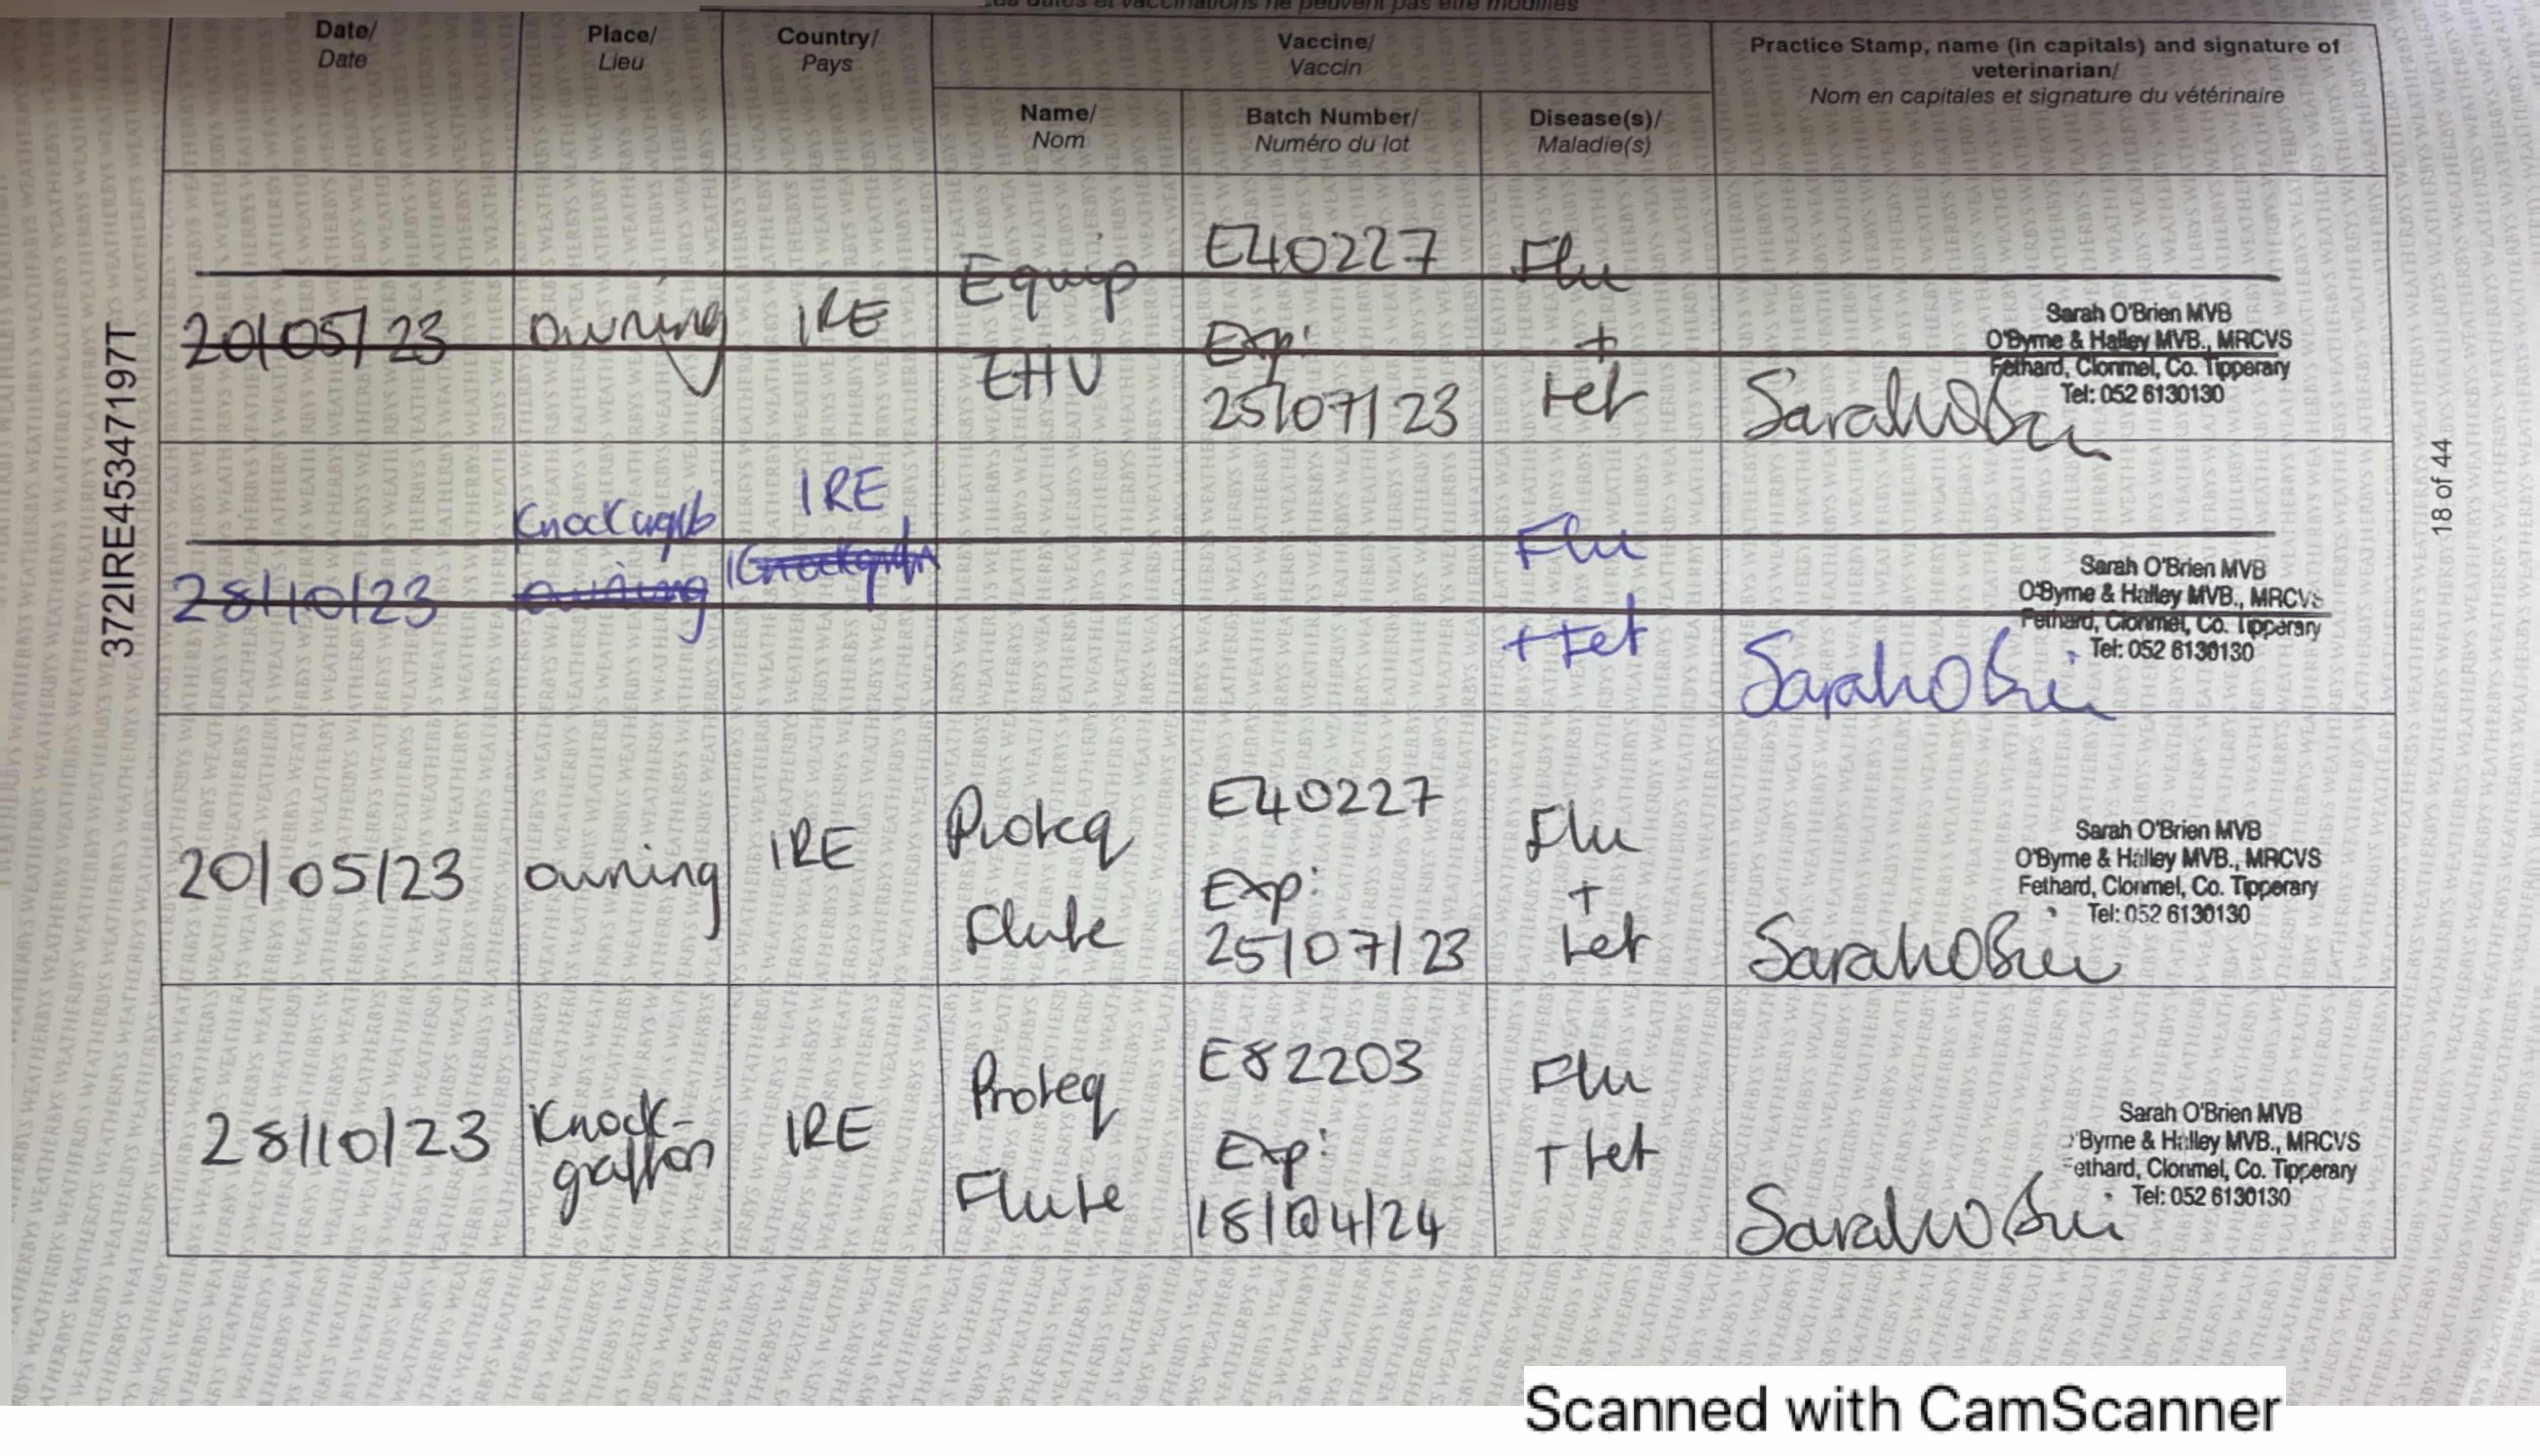 Date/
Date
Place/
Lieu
Country/
Pays
Vaccine/
Vaccin
Name/
Nom
Batch Number/
Numéro du lot
Disease(s)/
Maladie(s)
Practice Stamp, name (in capitals) and signature of
veterinarian/
Nom en capitales et signature du vétérinaire
20/05/23
owning
IRE
Equip
EHV
E40227
Exp:
25/07/23
Flu
+
tet
Sarah O'Brien MVB
O'Byrne & Halley MVB., MRCVS
Fethard, Clonmel, Co. Tipperary
Tel: 052 6130130
28/10/23
owning
IRE
Flu
+ tet
Sarah O'Brien MVB
O'Byrne & Halley MVB., MRCVS
Fethard, Clonmel, Co. Tipperary
Tel: 052 6130130
20/05/23
owning
IRE
Proteq
Flute
E40227
Exp:
25/07/23
Flu
+
tet
Sarah O'Brien MVB
O'Byrne & Halley MVB., MRCVS
Fethard, Clonmel, Co. Tipperary
Tel: 052 6130130
28/10/23
Knock-
graffon
IRE
Proteq
Flute
E82203
Exp:
18/04/24
Flu
+ tet
Sarah O'Brien MVB
Byrne & Halley MVB., MRCVS
ethard, Clonmel, Co. Tipperary
Tel: 052 6130130
372IRE45347197T
18 of 44
Scanned with CamScanner